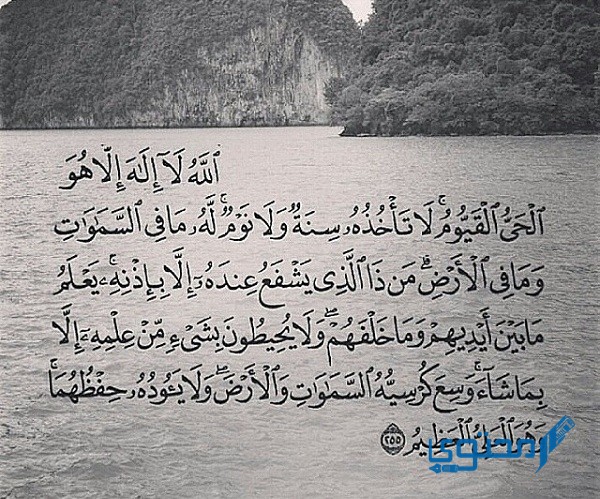 ٱللَّهُ لَآ إِلَٰهَ إِلَّا هُوَ
ٱلْحَىُّ ٱلْقَيُّومُ ۚ لَا تَأْخُذُهُۥ سِنَةٌ وَلَا نَوْمٌ ۚ لَّهُۥ مَا فِى ٱلسَّمَٰوَٰتِ
وَمَا فِى ٱلْأَرْضِ ۗ مَن ذَا ٱلَّذِى يَشْفَعُ عِندَهُۥٓ إِلَّا بِإِذْنِهِۦ ۚ يَعْلَمُ
مَا بَيْنَ أَيْدِيهِمْ وَمَا خَلْفَهُمْ ۖ وَلَا يُحِيطُونَ بِشَىْءٍ مِّنْ عِلْمِهِۦٓ إِلَّا
بِمَا شَآءَ ۚ وَسِعَ كُرْسِيُّهُ ٱلسَّمَٰوَٰتِ وَٱلْأَرْضَ ۖ وَلَا يَـُٔودُهُۥ حِفْظُهُمَا ۚ
وَهُوَ ٱلْعَلِىُّ ٱلْعَظِيمُ ٢٥٥
محتوى